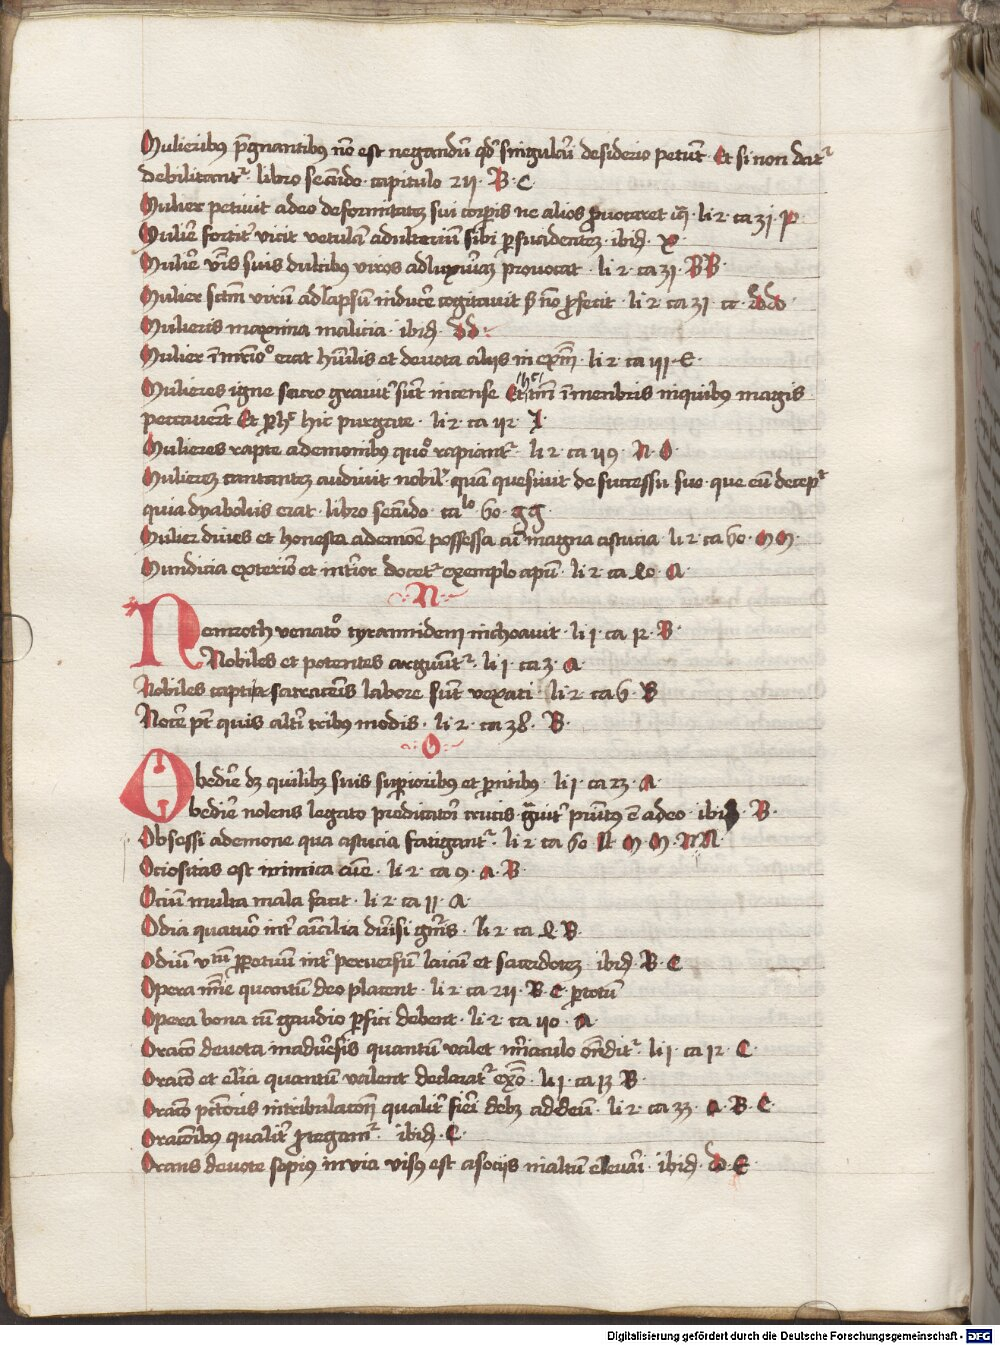 Mulieribus p̄gnantibus nō est negandū qd̓ singulari desiderio petūt · Et si non datr̃
debilitantr̃ · libro secūdo · capitulo 2ij · B · C
Mulier petiuit a deo deformitatē sui corpis ne alios ꝓuocaret · li 2 · ca 3j · P
Mulier̃ fortit̃ vicit vetulam adulteriū sibi ꝑsuadentez · ibid̃ · X ·
Mulier̃ v̓bis suis dulcibus viros ad luxuriaʒ prouocat · li 2 · ca 3j · BB ·
Mulier sctm̄ virū ad lapsum inducẽ cogitauit sʒ nō ꝓfecit · li 2 · ca 3j · cc · dd ·
Mulieris maxima malicia · ibid̃ · dd ·
Mulier erat hūilis et deuota alijs in exm̄ · li 2 · ca iij · E ·
Mulieres igne sacro grauit̃ sūt incense Et tm̄ ī menbris in quibus magis
peccauer̄t Et ꝓ hͨ hic purgate · li 2 · ca 112 · I ·
Mulieres rapte a demonibus quō rapiantr̃ · li 2 · ca 119 · N · O ·
Mulierez cantantez audiuit nobil̓ quā quesiuit de successu suo · que eū decepͭ
quia dyabolus erat · libro secūdo · calo 60 · gg ·
Mulier diues et honesta a demōe possessa cū magna astucia · li 2 · ca 60 · MM ·
Mundicia exterior̃ et int̓ior docetr̃ exemplo apum · li 2 · ca 20 · A ·
· N ·
Nemroth venator̃ tyrannidem inchoauit · li 1 · ca 12 · B ·
Nobiles et potentes arguūtr̃ · li 1 · ca 3 · A ·
Nobiles capti a sarracenis labore sūt vexati · li 2 · ca 6 · B
Nocẽ pt̄ quis alt̓i tribus modis · li 2 · ca 38 · B ·
· O ·
Obedir̃ dʒ quilibʒ suis supioribus et pār̄tibus · li 1 · ca 23 · A ·
Obedir̃ nolens legato p̄dicatori crucis grauit̃ punitus ē a deo · ibid̃ · B ·
Obsessi a demone qua astucia fatigantr̃ · li 2 · ca 60 · LL · M · M · NN ·
Ociositas est inimica aīe · li 2 · ca 9 · A · B ·
Ociū multa mala facit · li 2 · ca 11 · A ·
Odia quatuor̃ int̓ auxilia · li 2 · ca · B ·
Odiū ꝑpetuum int̓ peruersum laicum et sacerdotez · ibid̃ · B · C
Opera mīe quantum deo placent · li 2 · ca 211 · B · C · ꝑ totū
Opera bona cum gaudio ꝑfici debent · li 2 · ca 110 · A ·
Oracō deuota in adu̓sis quantū valet miraculo ondītr̃ · li 1 · ca 12 · C
Oracō et elīa quantū valent declaratr̃ exō · li 1 · ca 13 B ·
Oracō pctōris in tribulacōe qualit̃ fieri debʒ ad deū · li 2 · ca 33 · A · B · C ·
Oracōibus qualit̃ ꝓtegamr̃ · ibid̃ · C ·
Orans deuote sepius in via visus est a socijs in altum eleuari · ibid̃ · D · E ·
Digitalisierung gefördert durch die Deutsche Forschungsgemeinschaft - DFG